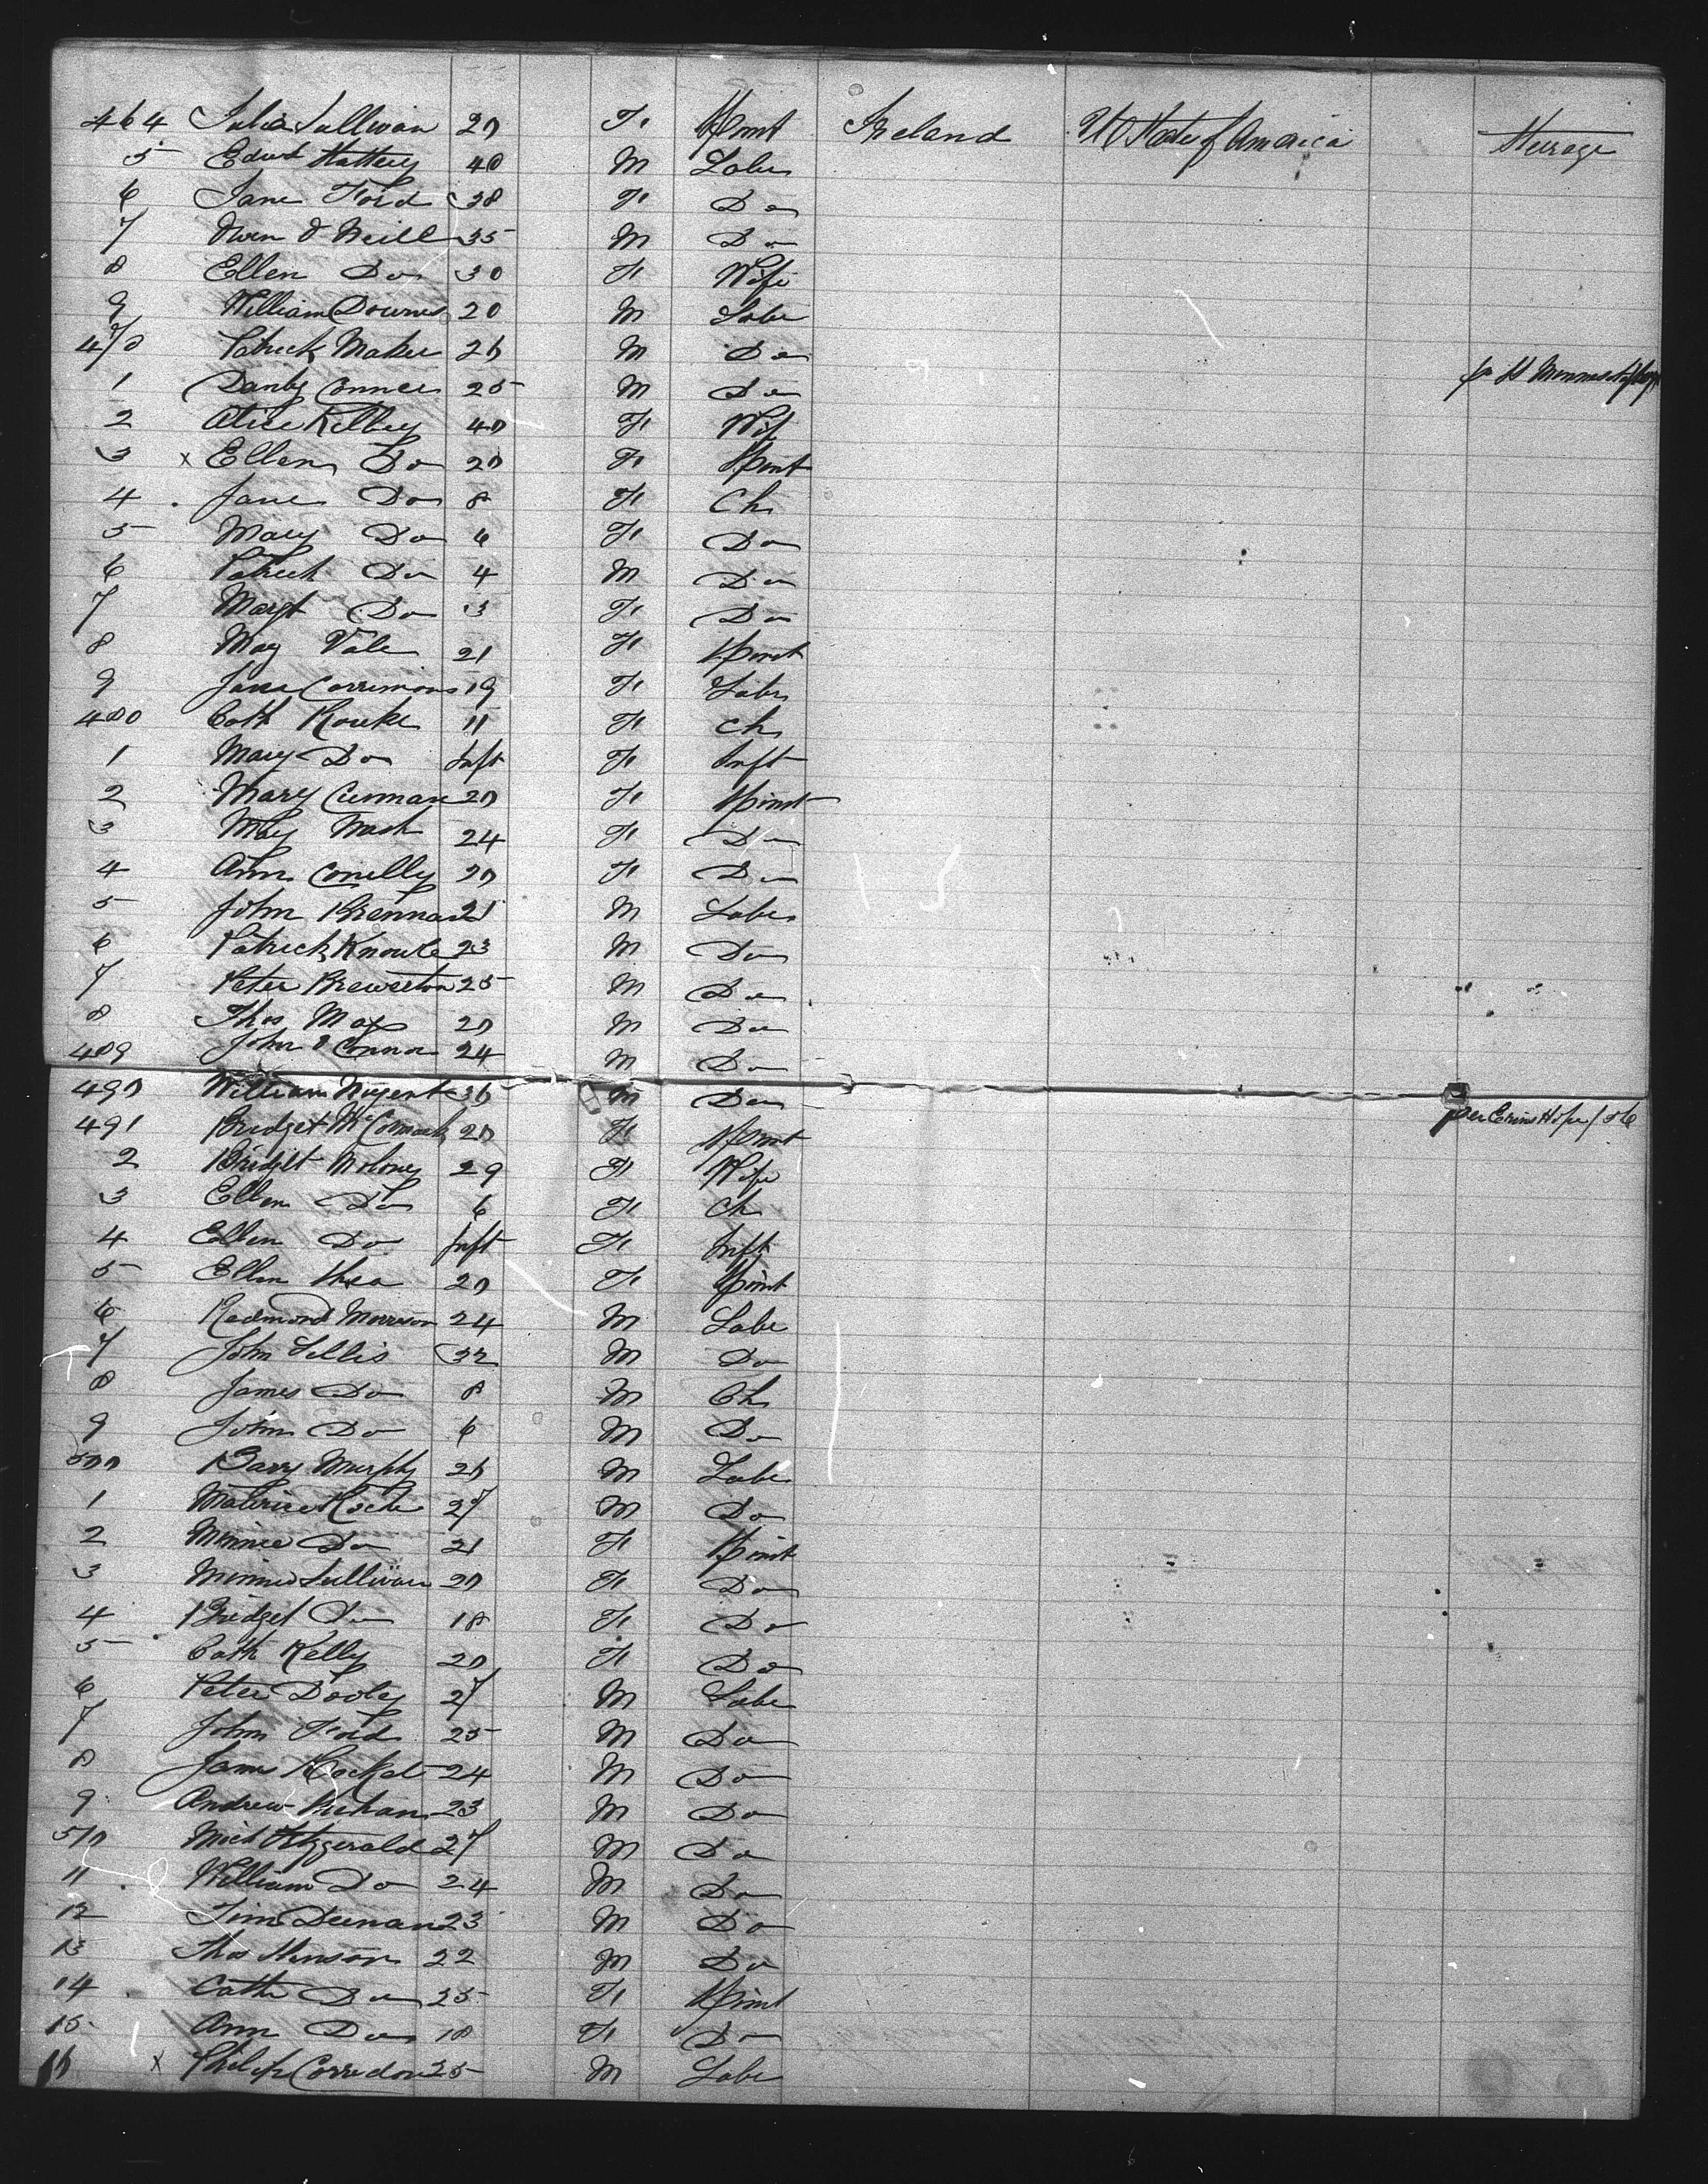 464 Julia Sullivan 20 F Spinst Ireland U States of America Steerage
5 Edwd Hattery 40 M Labr
6 Jane Ford 38 F Do
7 Owen O Neill 35 M Do
8 Ellen Do 30 F Wife
9 William Downes 20 M Labr
470 Patrick Maher 26 M Do
1 Danby Connces 25 M Do
2 Alice Kelley 40 F Wife
3 x Ellen Do 20 F Spinst
4 Jane Do 8 F Ch
5 Mary Do 6 F Do
6 Patrick Do 4 M Do
7 Margt Do 3 F Do
8 May Vale 21 F Spinst
9 Jane 19 F Labr
480 Cath Rourke 11 F Ch
1 Mary Do Inft F Inft
2 Mary 20 F Spinst
3 May Nash 24 F Do
4 Ann Conelly 20 F Do
5 John Brennan 21 M Labr
6 Patrick Knowle 23 M Do
7 Peter Brewerton 25 M Do
8 Thos May 20 M Do
489 John O Connor 24 M Do
490 William Nugent 36 M Do
491 Bridget McCormack 20 F Spinst per Erins Hope
2 Bridget Moloney 29 F Wife
3 Ellen Do 6 F Ch
4 Ellen Do Inft F Inft
5 Ellen Shea 20 F Spinst
6 Redmond Morrison 24 M Labr
7 John Lillis 32 M Do
8 James Do 8 M Ch
9 John Do 6 M Do
500 Barry Murphy 26 M Labr
1 Maurice Roche 27 M Do
2 Minnie Do 21 F Spinst
3 Minnie Sullivan 20 F Do
4 Bridget Do 18 F Do
5 Cath Kelly 20 F Do
6 Peter Dooley 27 M Labr
7 John Ford 25 M Do
8 James Hacket 24 M Do
9 Andrew 23 M Do
510 Mich Fitzgerald 27 M Do
11 William Do 24 M Do
12 Tim Deenan 23 M Do
13 Thos Henson 22 M Do
14 Cath Do 25 F Spinst
15 Ann Do 18 F Do
16 x Philip Corredon 25 M Labr